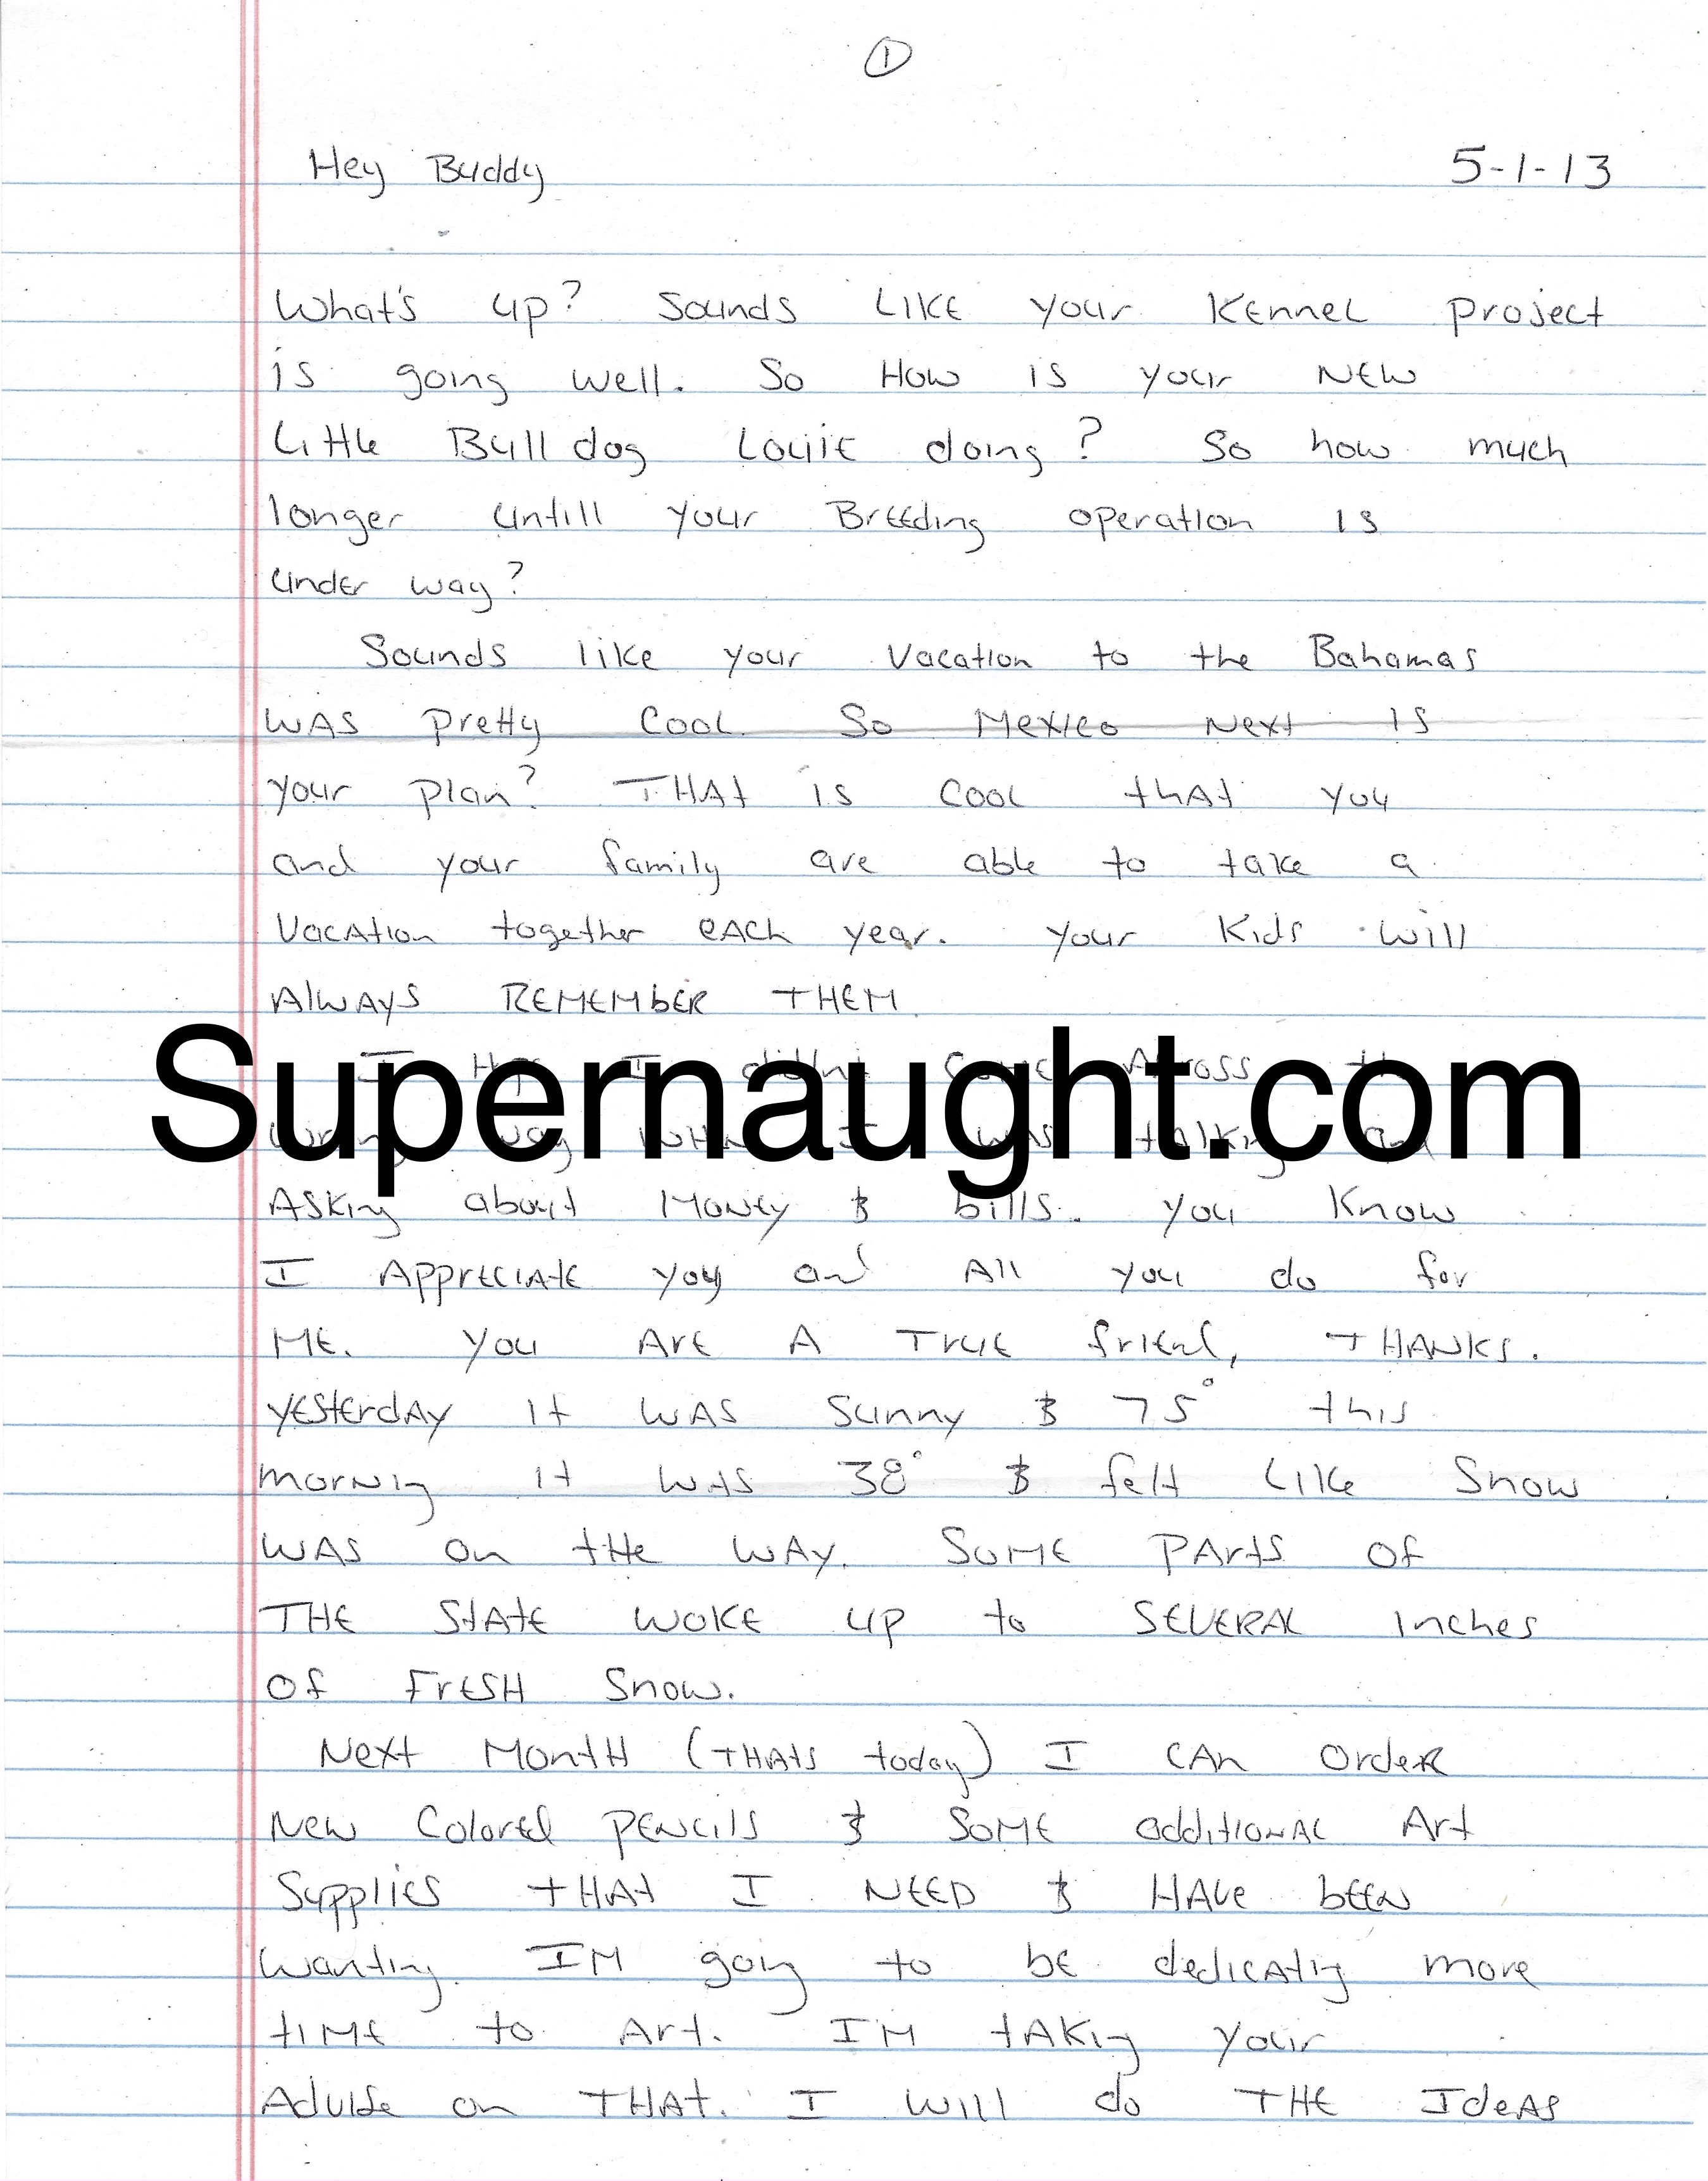 1
Hey Buddy 5-1-13
What's up? Sounds LIKE your KEnnel project
is going well. So How is your NEW
Little Bulldog Louie doing? So how much
longer untill your Breeding operation is
under way?
Sounds like your vacation to the Bahamas
WAS pretty COOL. So Mexico Next is
your plan? THAt is COOL thAT you
and your family are able to take a
VacAtion together eACh year. your Kids will
AlWAYS REMEMbER THEM.
I I didnt Across
Supernaught.com
way WAS talking
ASKing about MONEY & bills. you Know
I AppreciAtE you and All you do for
ME. you ArE A TruE friend, tHANKS.
yEStErdAy it WAS Sunny & 75° this
morning it WAS 38° & felt Like Snow
WAS on tHe WAy. SOME PArtS Of
THE StAtE WOKE up to SEVERAL inches
Of FrESH Snow.
Next MontH (tHAtS today) I CAn OrdeR
New Colored PENcilS & SOME additIONAL Art
Supplies tHAt I NEED & HAVe bEEN
wanting. IM going to bE dedicAting more
tiME to Art. I'M tAKing your
AdviSe on THAT. I Will do THE IdeAS